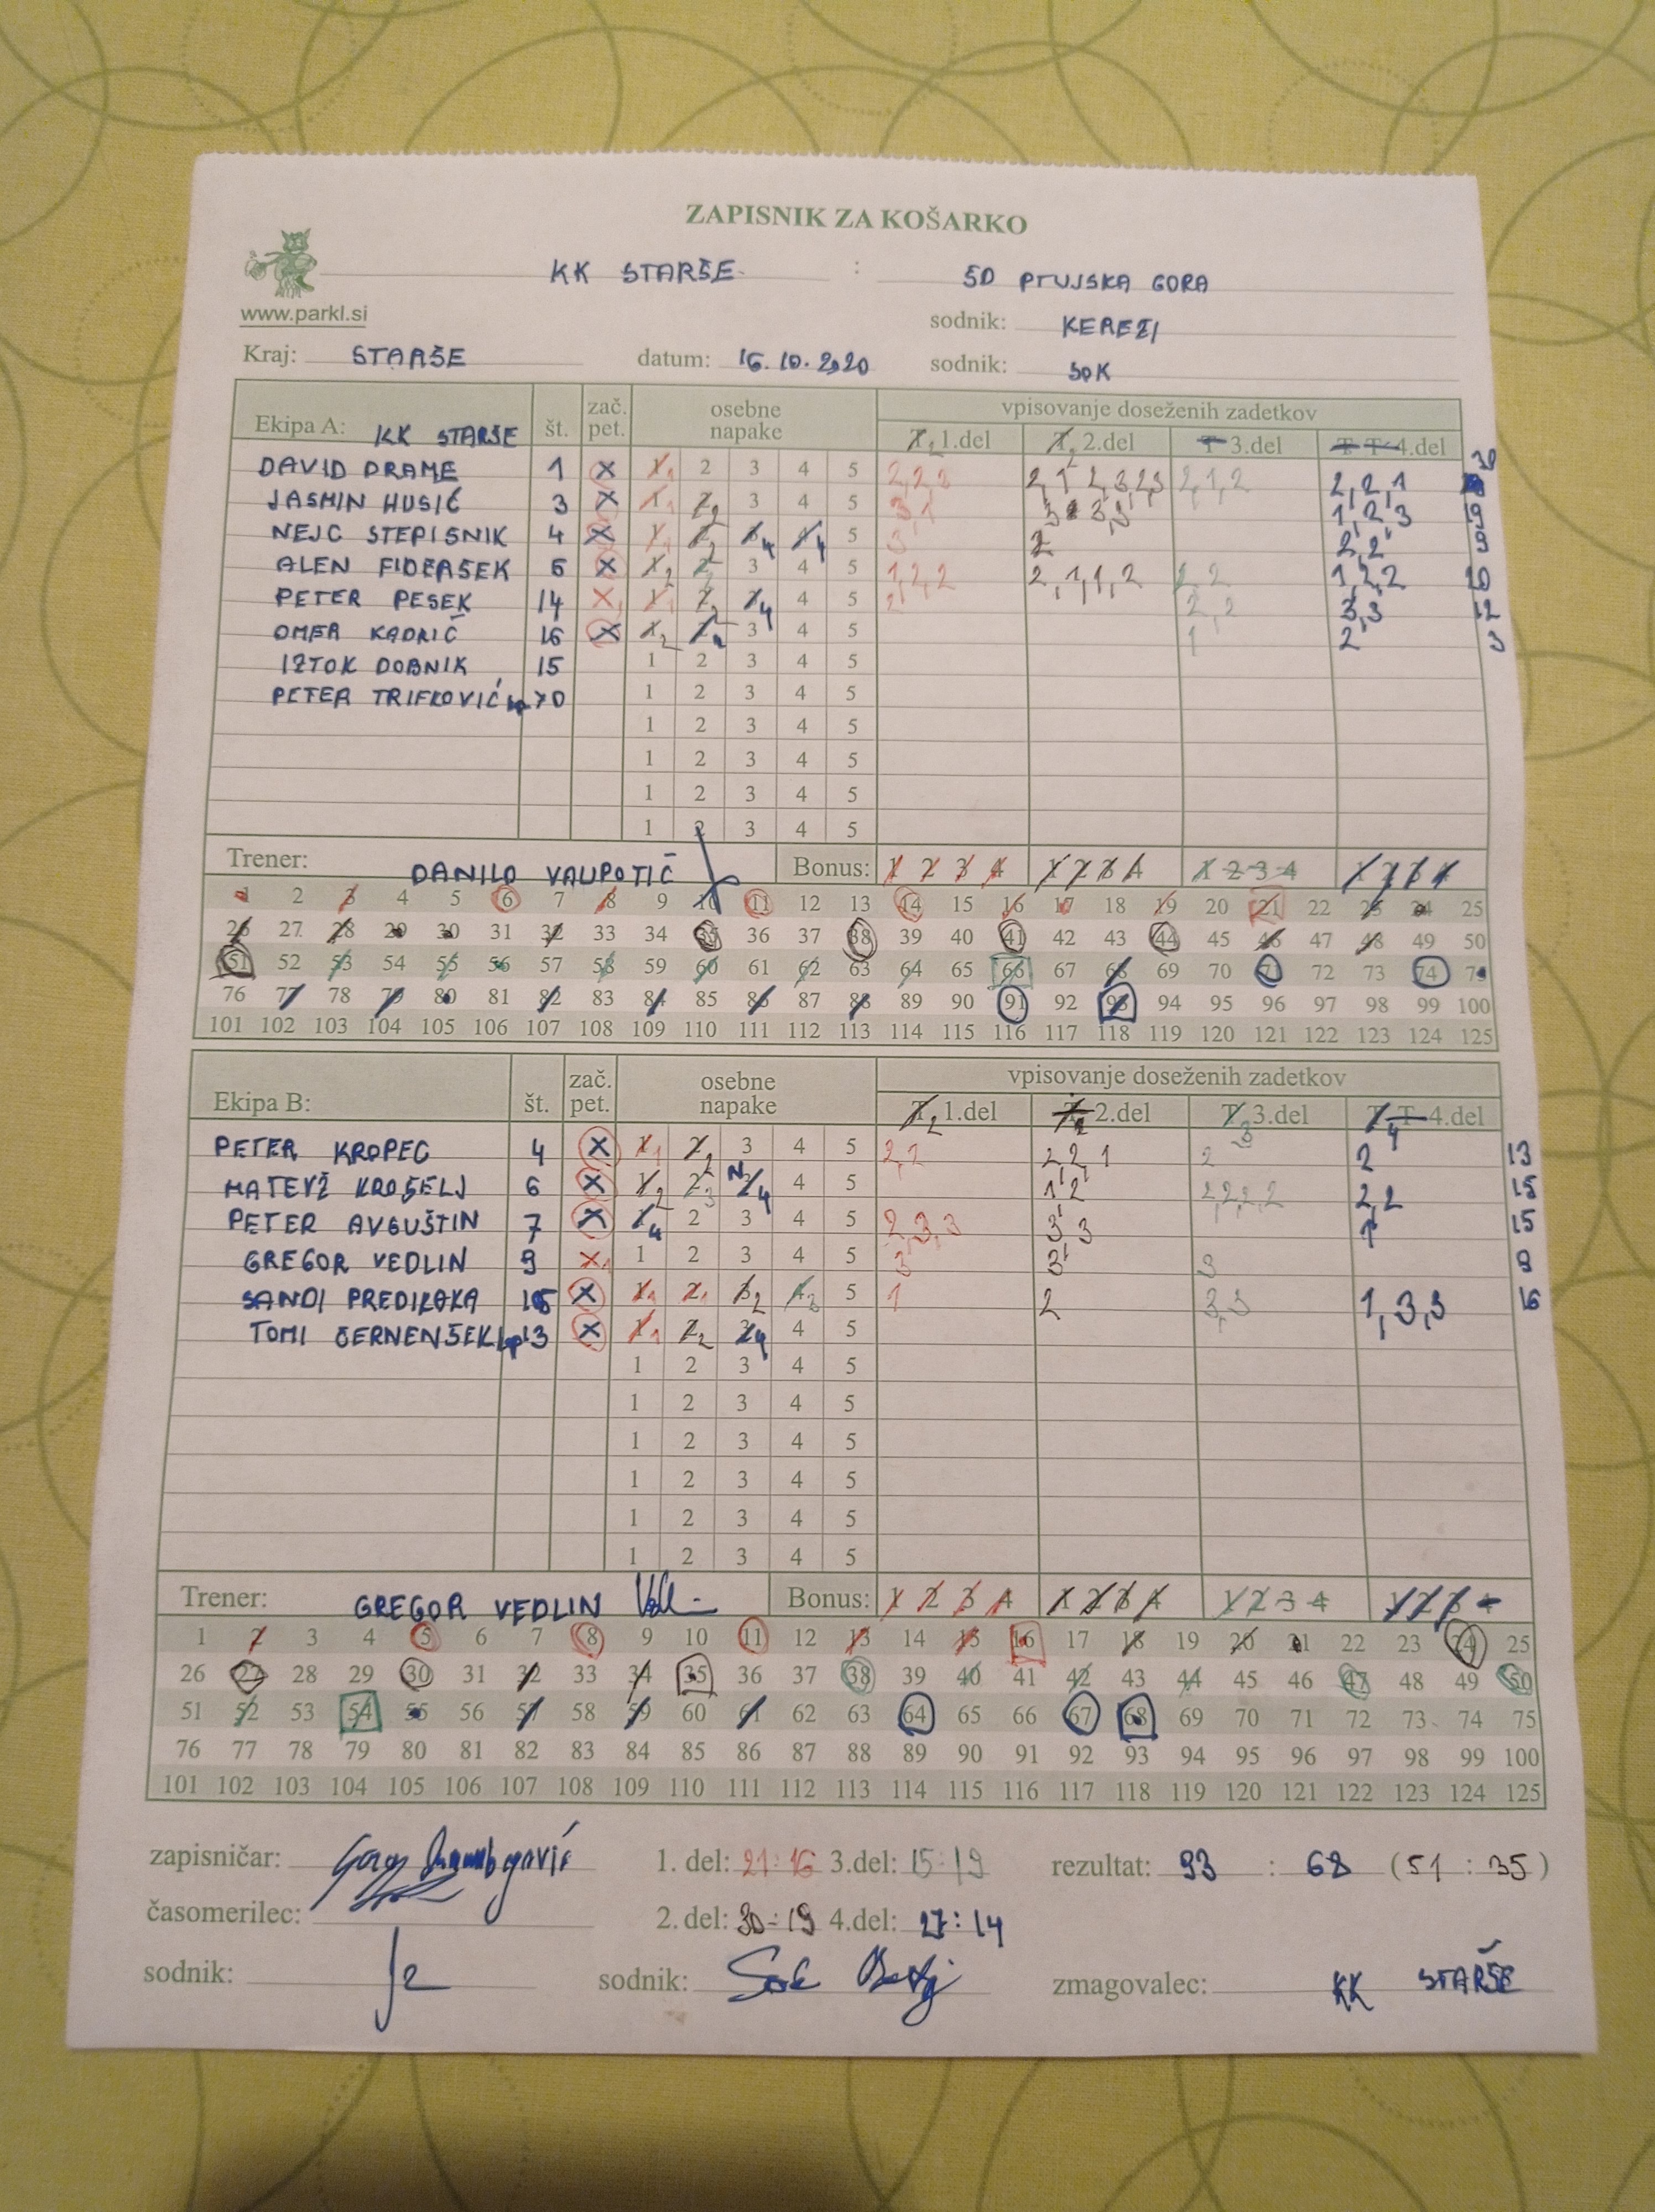 ZAPISNIK ZA KOŠARKO
KK STARŠE : ŠD PTUJSKA GORA
www.parkl.si
sodnik: KEREŽI
Kraj: STARŠE datum: 16.10.2020 sodnik: SOK
Ekipa A: KK STARŠE št. zač. pet. osebne napake vpisovanje doseženih zadetkov
1.del 2.del 3.del 4.del
DAVID DRAME 1 X 1 2 3 4 5 2,2,3 2,1,2,3,2,3 2,1,2 2,2,1
JASMIN HUSIĆ 3 X 1 2 3 4 5 3,1 3 3,3 1,2,3 19
NEJC STEPIŠNIK 4 X 1 2 3 4 5 3 2 2,2 9
ALEN FIDERŠEK 6 X 1 2 3 4 5 1,2,2 2,1,1,2 2,2 1,2,2 20
PETER PESEK 14 X 1 2 3 4 5 2 2,2 3,3 12
OMER KADRIČ 16 X 1 2 3 4 5 1 2 3
IZTOK DOBNIK 15 1 2 3 4 5
PETER TRIFKOVIĆ 70 1 2 3 4 5
1 2 3 4 5
1 2 3 4 5
1 2 3 4 5
1 2 3 4 5
Trener: DANILO VAUPOTIČ Bonus: 1 2 3 4 1 2 3 4 1 2 3 4 1 2 3 4
1 2 3 4 5 6 7 8 9 10 11 12 13 14 15 16 17 18 19 20 21 22 23 24 25
26 27 28 29 30 31 32 33 34 35 36 37 38 39 40 41 42 43 44 45 46 47 48 49 50
51 52 53 54 55 56 57 58 59 60 61 62 63 64 65 66 67 68 69 70 71 72 73 74 75
76 77 78 79 80 81 82 83 84 85 86 87 88 89 90 91 92 93 94 95 96 97 98 99 100
101 102 103 104 105 106 107 108 109 110 111 112 113 114 115 116 117 118 119 120 121 122 123 124 125
Ekipa B: št. zač. pet. osebne napake vpisovanje doseženih zadetkov
1.del 2.del 3.del 4.del
PETER KROPEC 4 X 1 2 3 4 5 2,2 2,2,1 2 2 13
MATEVŽ KROŠELJ 6 X 1 2 3 4 5 1,2 2,2,2,2 2,2 15
PETER AVGUŠTIN 7 X 1 2 3 4 5 2,3,3 3,3 1 15
GREGOR VEDLIN 9 X 1 2 3 4 5 3 3 3 9
SANDI PREDIKAKA X 1 2 3 4 5 1 2 3,3 1,3,3 16
TOMI ČERNENŠEK 13 X 1 2 3 4 5
1 2 3 4 5
1 2 3 4 5
1 2 3 4 5
1 2 3 4 5
1 2 3 4 5
1 2 3 4 5
Trener: GREGOR VEDLIN Bonus: 1 2 3 4 1 2 3 4 1 2 3 4 1 2 3 4
1 2 3 4 5 6 7 8 9 10 11 12 13 14 15 16 17 18 19 20 21 22 23 24 25
26 27 28 29 30 31 32 33 34 35 36 37 38 39 40 41 42 43 44 45 46 47 48 49 50
51 52 53 54 55 56 57 58 59 60 61 62 63 64 65 66 67 68 69 70 71 72 73 74 75
76 77 78 79 80 81 82 83 84 85 86 87 88 89 90 91 92 93 94 95 96 97 98 99 100
101 102 103 104 105 106 107 108 109 110 111 112 113 114 115 116 117 118 119 120 121 122 123 124 125
zapisničar: 1. del: 21:16 3.del: 15:19 rezultat: 93 : 68 (51 : 35)
časomerilec: 2. del: 30:19 4.del: 27:14
sodnik: sodnik: zmagovalec: KK STARŠE